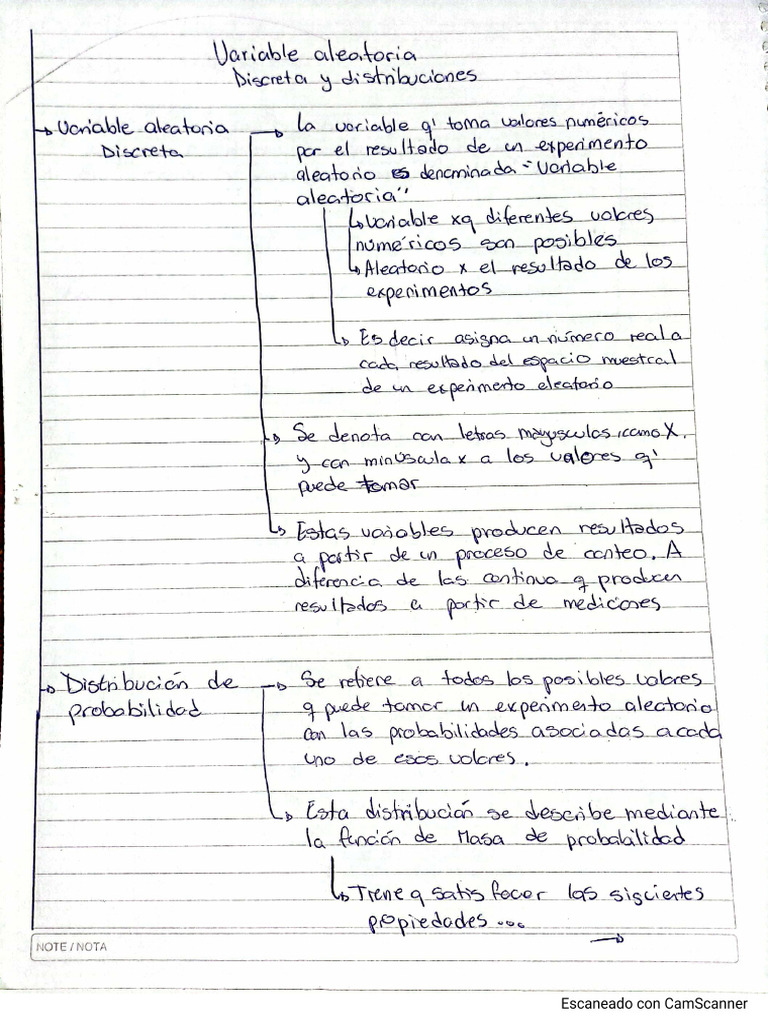 Variable aleatoria
Discreta y distribuciones
Variable aleatoria
Discreta
La variable q' toma valores numéricos
por el resultado de un experimento
aleatorio es denominada "Variable
aleatoria"
Variable xq diferentes valores
númericos son posibles
Aleatorio x el resultado de los
experimentos
Es decir asigna un número real a
cada resultado del espacio muestral
de un experimento aleatorio
Se denota con letras mayusculas, como X,
y con minúscula x a los valores q'
puede tomar
Estas variables producen resultados
a partir de un proceso de conteo. A
diferencia de las continua q producen
resultados a partir de mediciones
Distribución de
probabilidad
Se refiere a todos los posibles valores
q puede tomar un experimento aleatorio
con las probabilidades asociadas a cada
uno de esos valores.
Esta distribución se describe mediante
la función de Masa de probabilidad
Tiene q satisfacer las siguientes
propiedades...
NOTE / NOTA
Escaneado con CamScanner